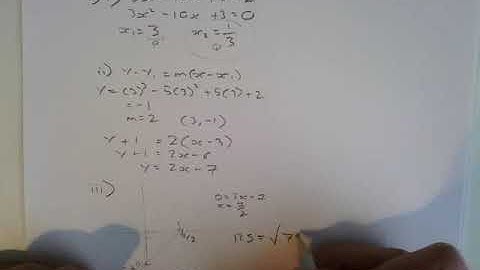 3x² - 10x + 3 = 0
x₁ = 3 x₂ = 1/3
ii) y - y₁ = m(x - x₁)
y = (3)³ - 5(3)² + 5(3) + 2
= -1
m = 2 (3, -1)
y + 1 = 2(x - 3)
y + 1 = 2x - 6
y = 2x - 7
iii)
x = 7/2